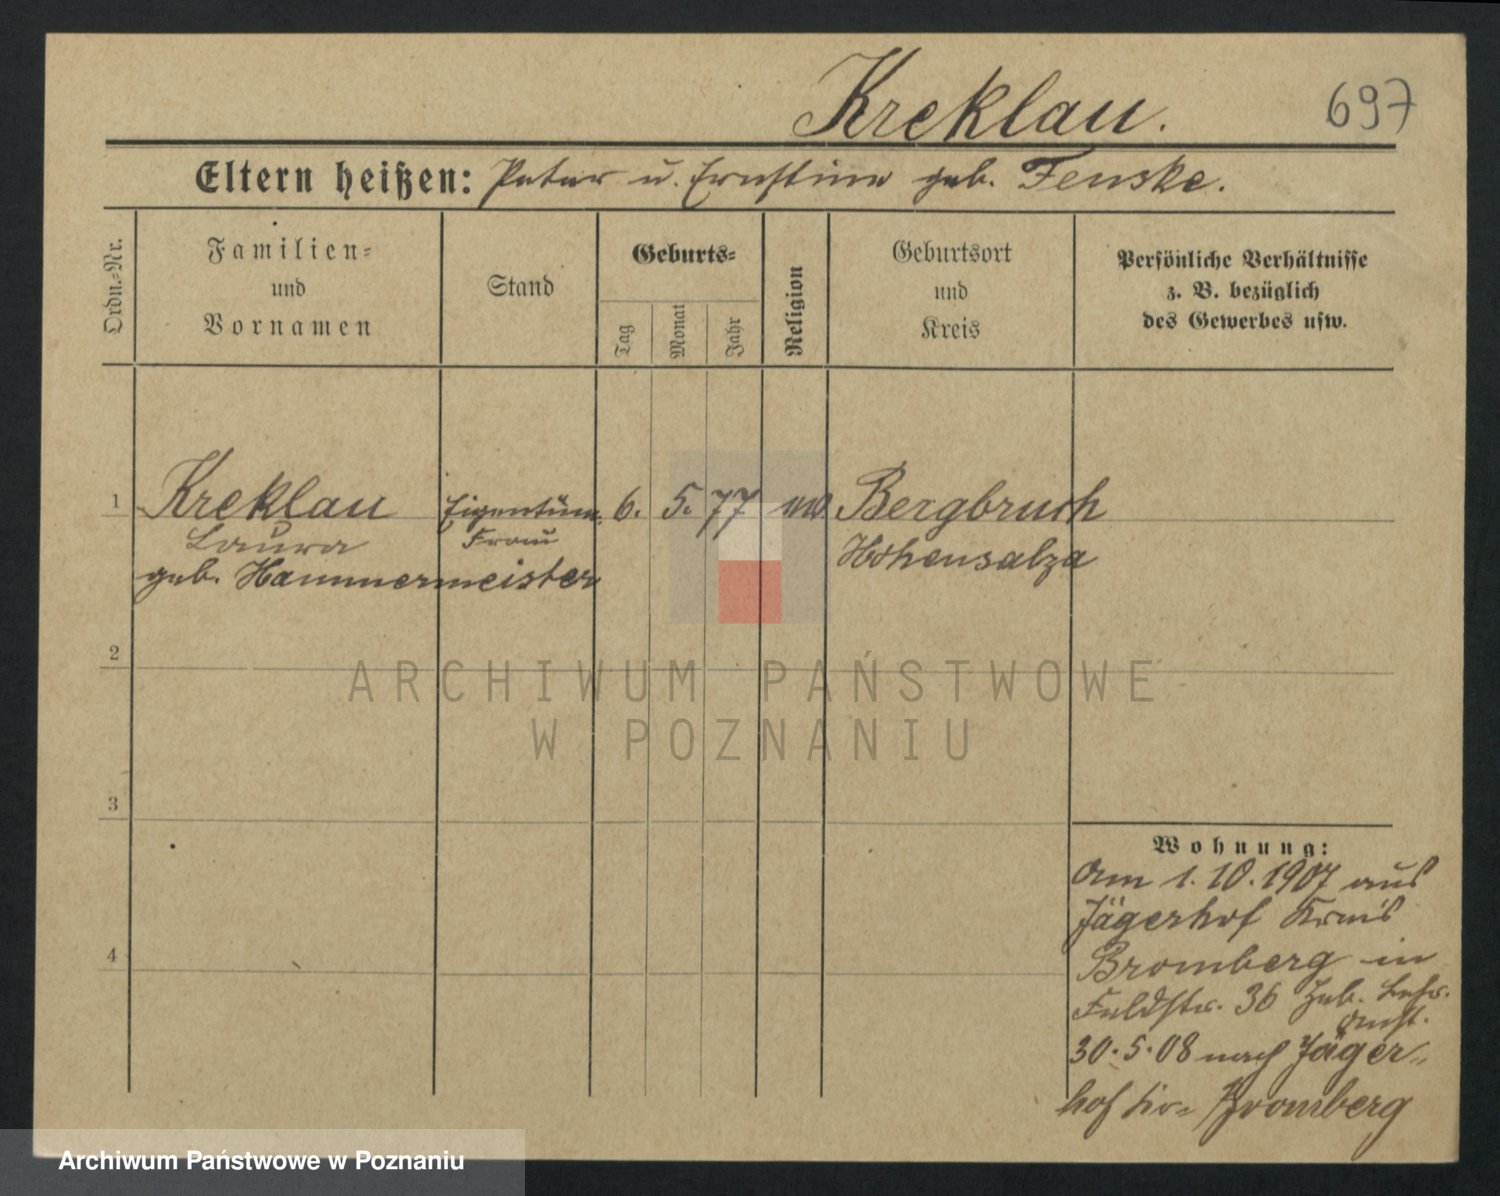 Kreklau.
697
Eltern heißen: Peter u. Ernstine geb. Fenske.
Ordn.-Nr.
Familien-
und
Vornamen
Stand
Geburts-
Tag
Monat
Jahr
Religion
Geburtsort
und
Kreis
Persönliche Verhältnisse
z. B. bezüglich
des Gewerbes usw.
1 Kreklau Eigentüm. 6. 5. 77 Bergbruch
Laura Frau Hohensalza
geb. Hammermeister
2
3
4
Wohnung:
Am 1. 10. 1907 aus
Jägerhof Kreis
Bromberg in
Feldstr. 36 Heb. Lehr.
Anst.
30. 5. 08 nach Jäger-
hof Kr. Bromberg
ARCHIWUM PAŃSTWOWE
W POZNANIU
Archiwum Państwowe w Poznaniu